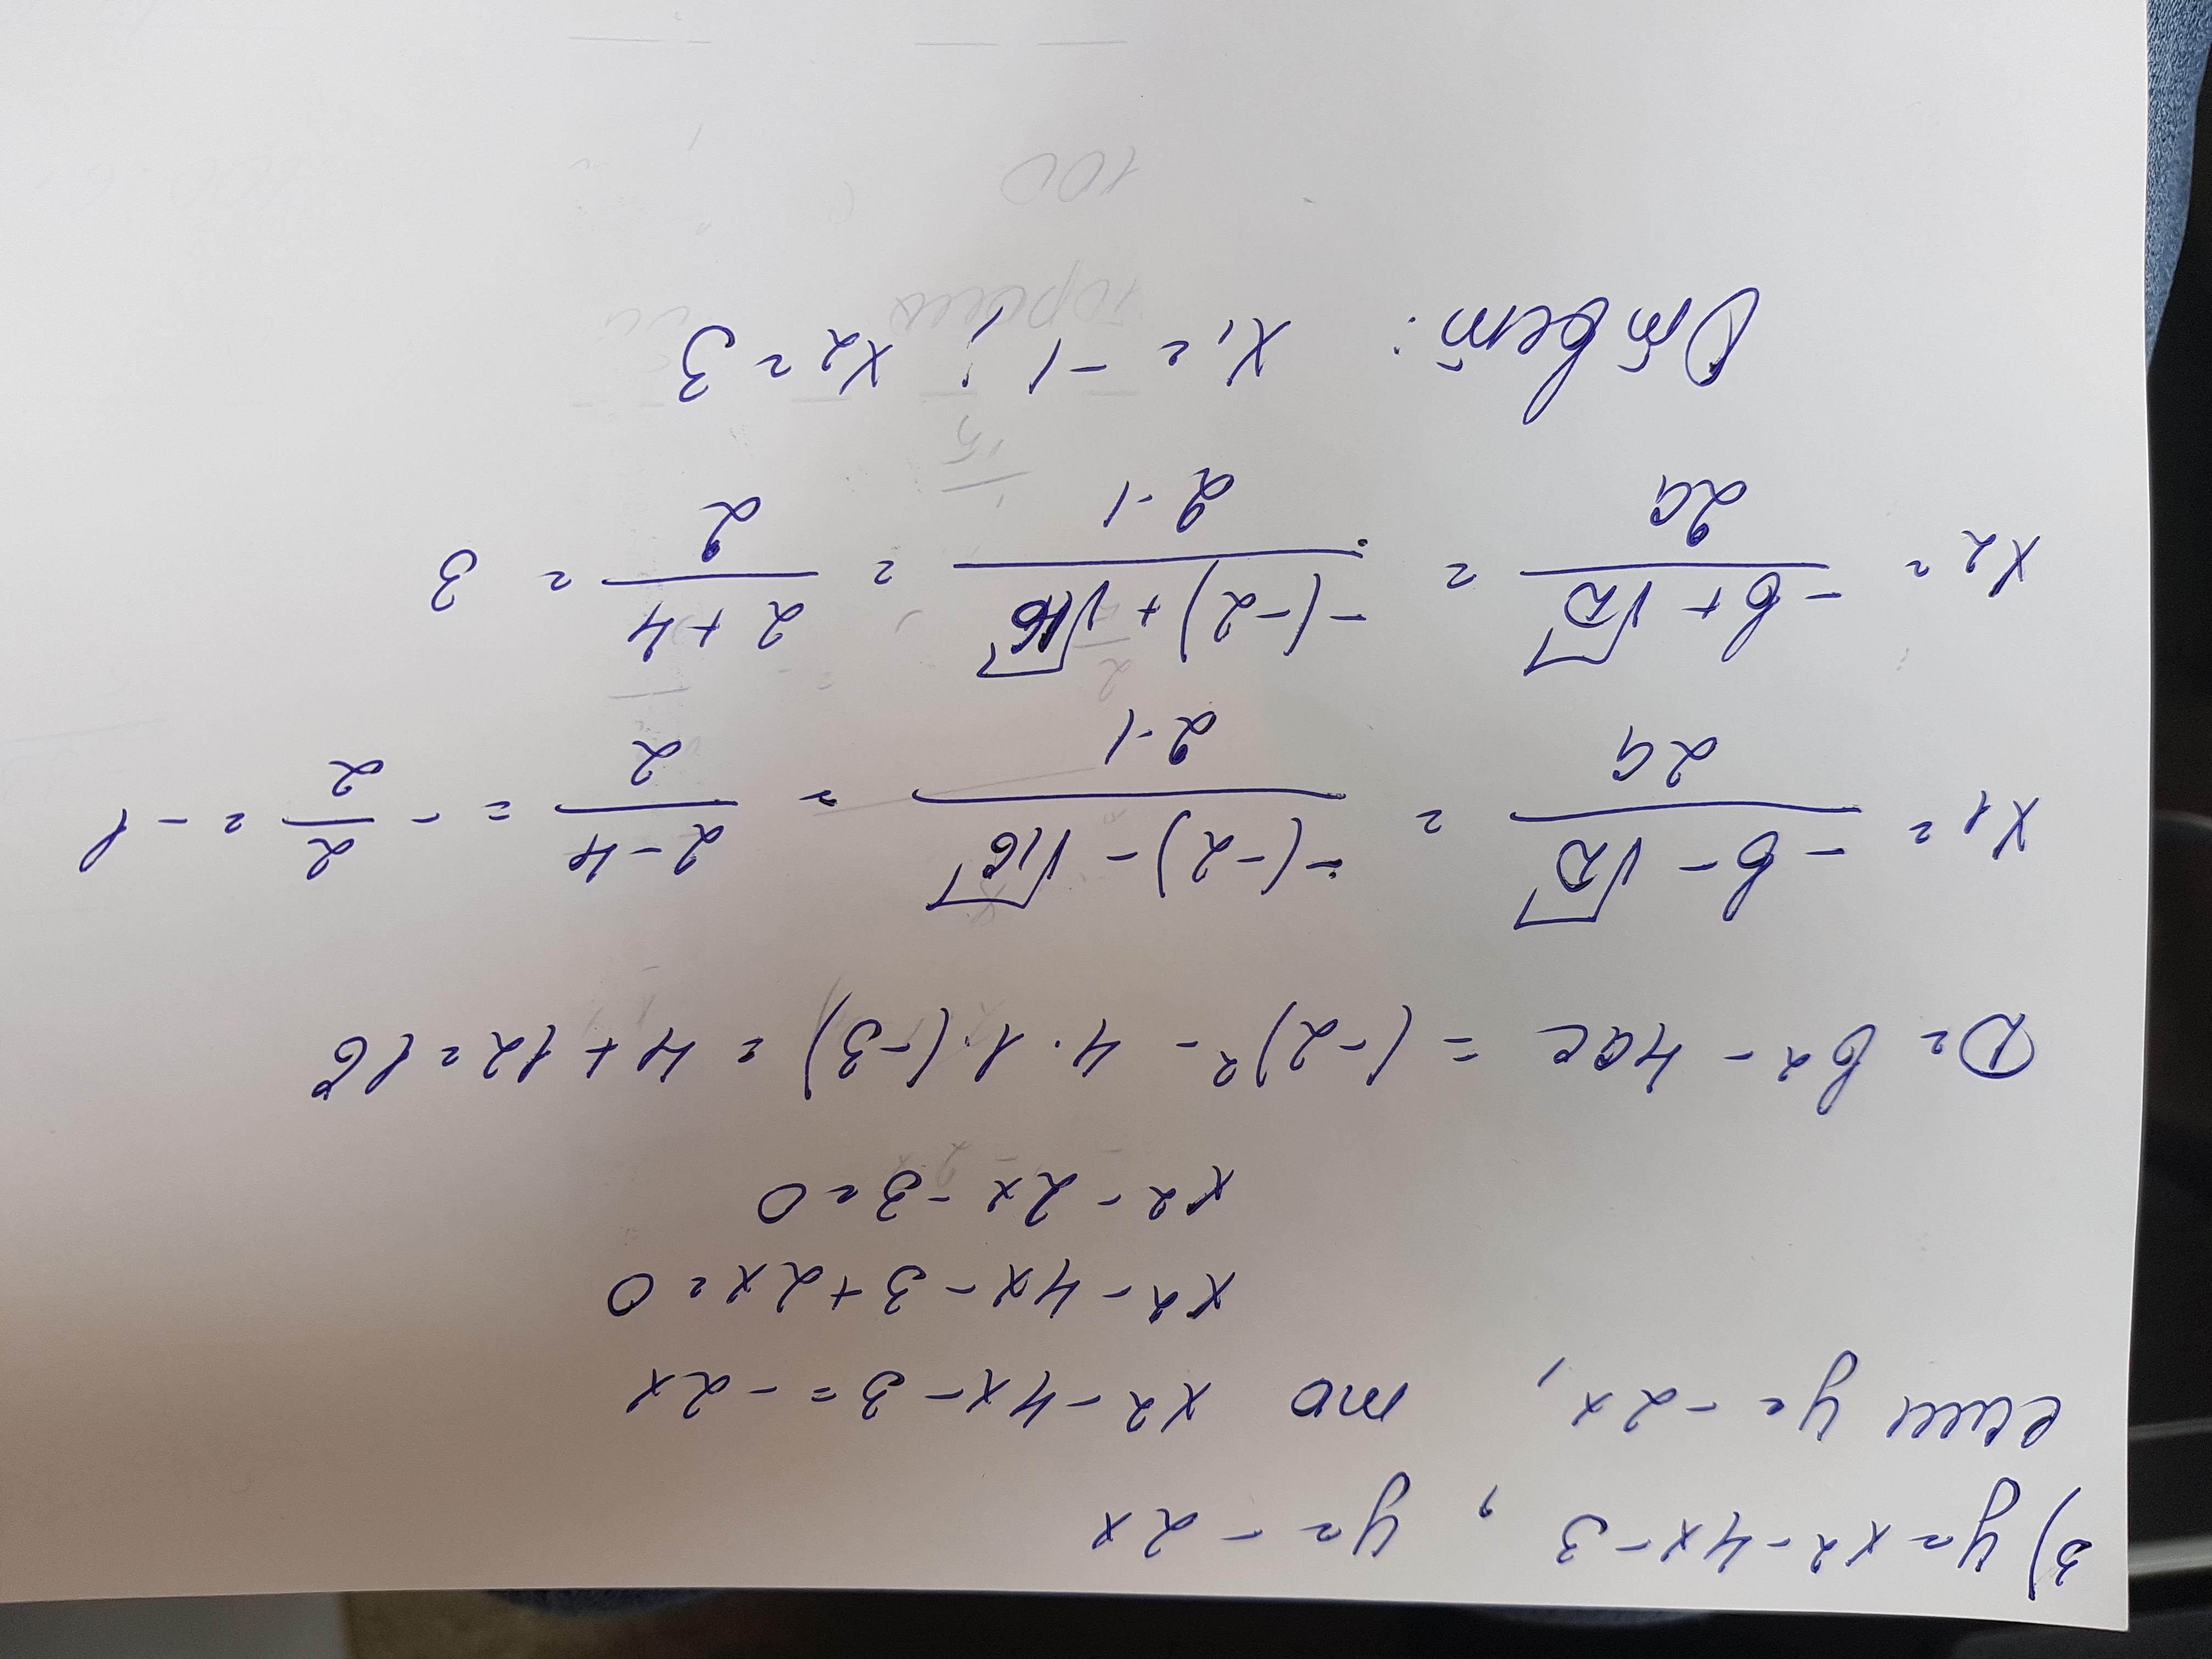 3) y = x2 - 4x - 3 , y = - 2x
если y = - 2x, то x2 - 4x - 3 = - 2x
x2 - 4x - 3 + 2x = 0
x2 - 2x - 3 = 0
D = b2 - 4ac = (-2)² - 4 · 1 · (-3) = 4 + 12 = 16
x1 = (-b - √D)/2a = (-(-2) - √16)/2·1 = (2-4)/2 = - 2/2 = - 1
x2 = (-b + √D)/2a = (-(-2) + √16)/2·1 = (2+4)/2 = 3
Ответ: x1 = -1 ; x2 = 3